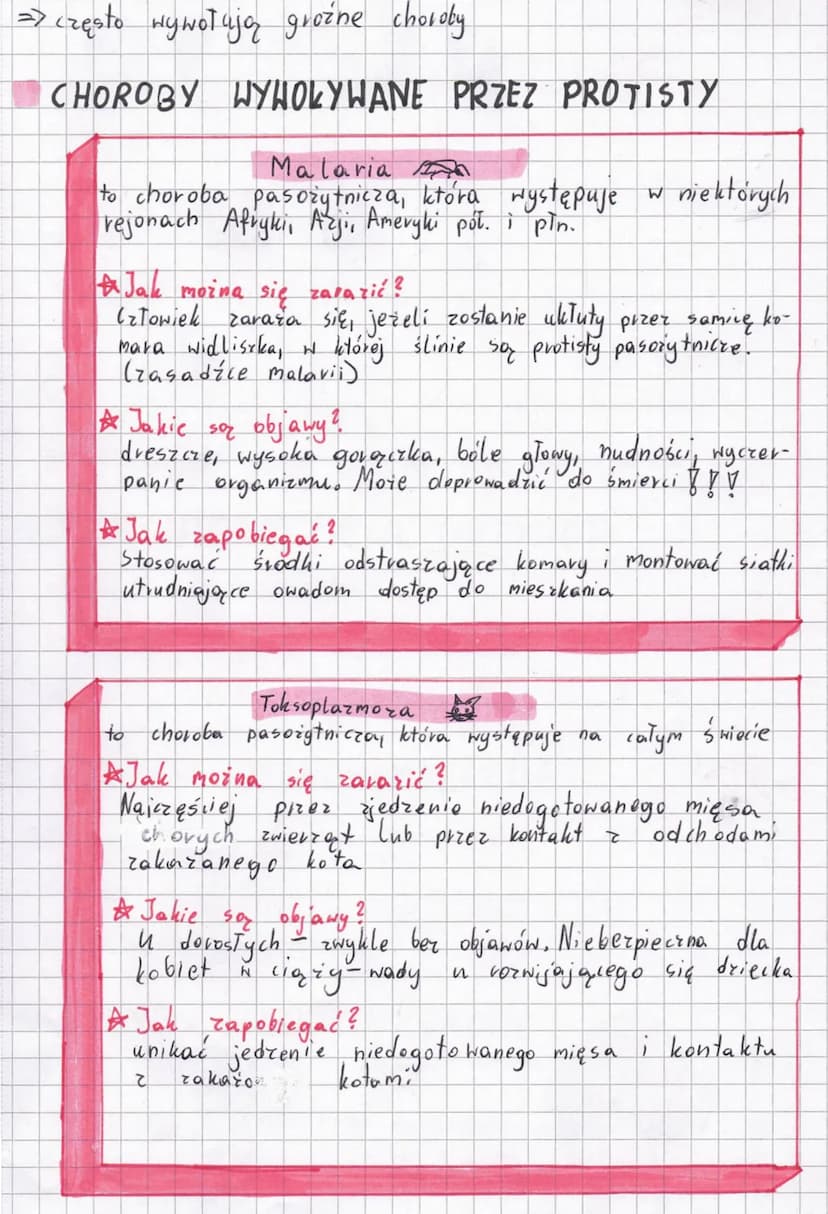 => często wywołują groźne choroby
CHOROBY WYWOŁYWANE PRZEZ PROTISTY
Malaria
to choroba pasożytnicza, która występuje w niektórych
rejonach Afryki, Azji, Ameryki pół. i płn.
☆ Jak można się zarazić?
Człowiek zaraża się, jeżeli zostanie ukłuty przez samicę ko-
mara widliszka, w której ślinie są protisty pasożytnicze.
(zasadźce malarii)
☆ Jakie są objawy?
dreszcze, wysoka gorączka, bóle głowy, nudności, wyczer-
panie organizmu. Może doprowadzić do śmierci!!!
☆ Jak zapobiegać?
Stosować środki odstraszające komary i montować siatki
utrudniające owadom dostęp do mieszkania
Toksoplazmoza
to choroba pasożytnicza, która występuje na całym świecie
☆ Jak można się zarazić?
Najczęściej przez zjedzenie niedogotowanego mięsa
chorych zwierząt lub przez kontakt z odchodami
zakażanego kota
☆ Jakie są objawy?
U dorosłych – zwykle bez objawów. Niebezpieczna dla
kobiet w ciąży – wady u rozwijającego się dziecka
☆ Jak zapobiegać?
unikać jedzenie niedogotowanego mięsa i kontaktu
z kotami